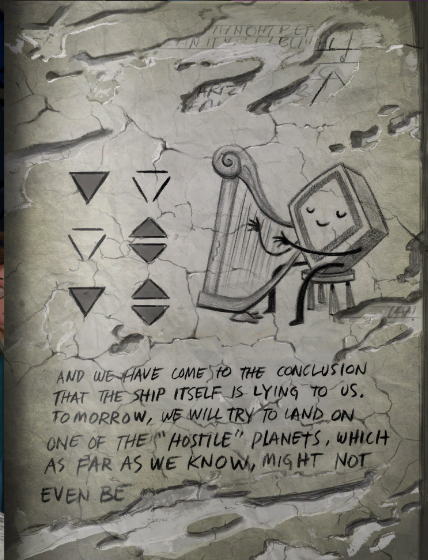 AND WE HAVE COME TO THE CONCLUSION
THAT THE SHIP ITSELF IS LYING TO US.
TOMORROW, WE WILL TRY TO LAND ON
ONE OF THE "HOSTILE" PLANETS, WHICH
AS FAR AS WE KNOW, MIGHT NOT
EVEN BE